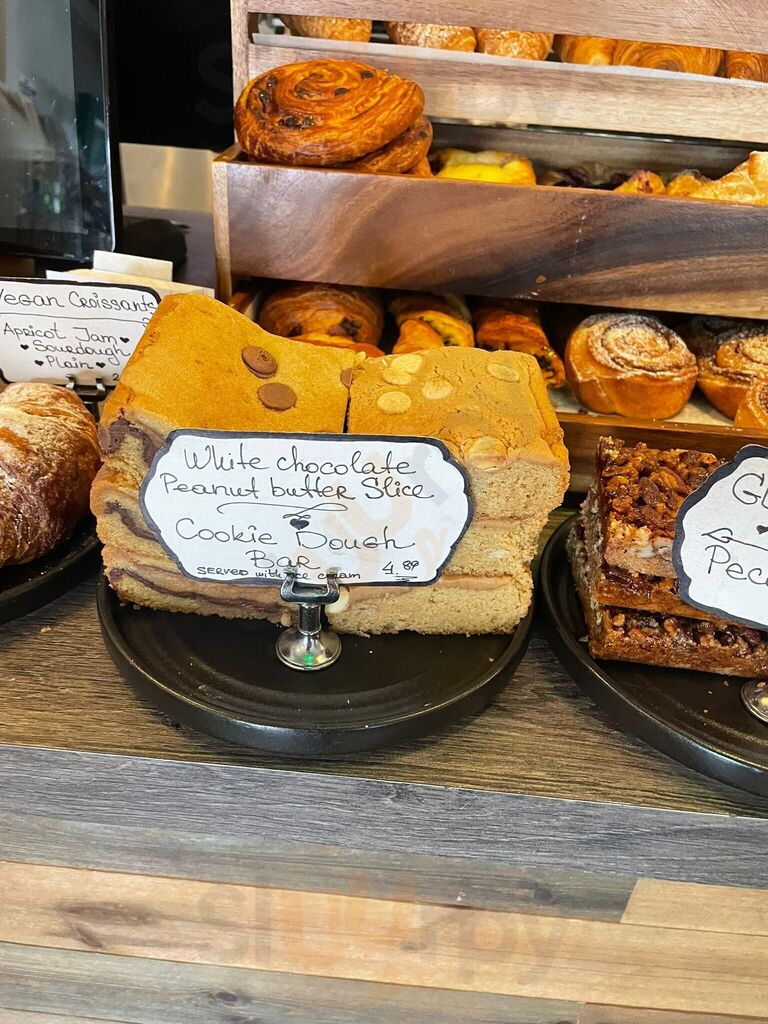 Vegan Croissants
Apricot Jam
Sourdough
Plain
White chocolate
Peanut butter Slice
Cookie Dough
Bar
SERVED with ice cream 4.80